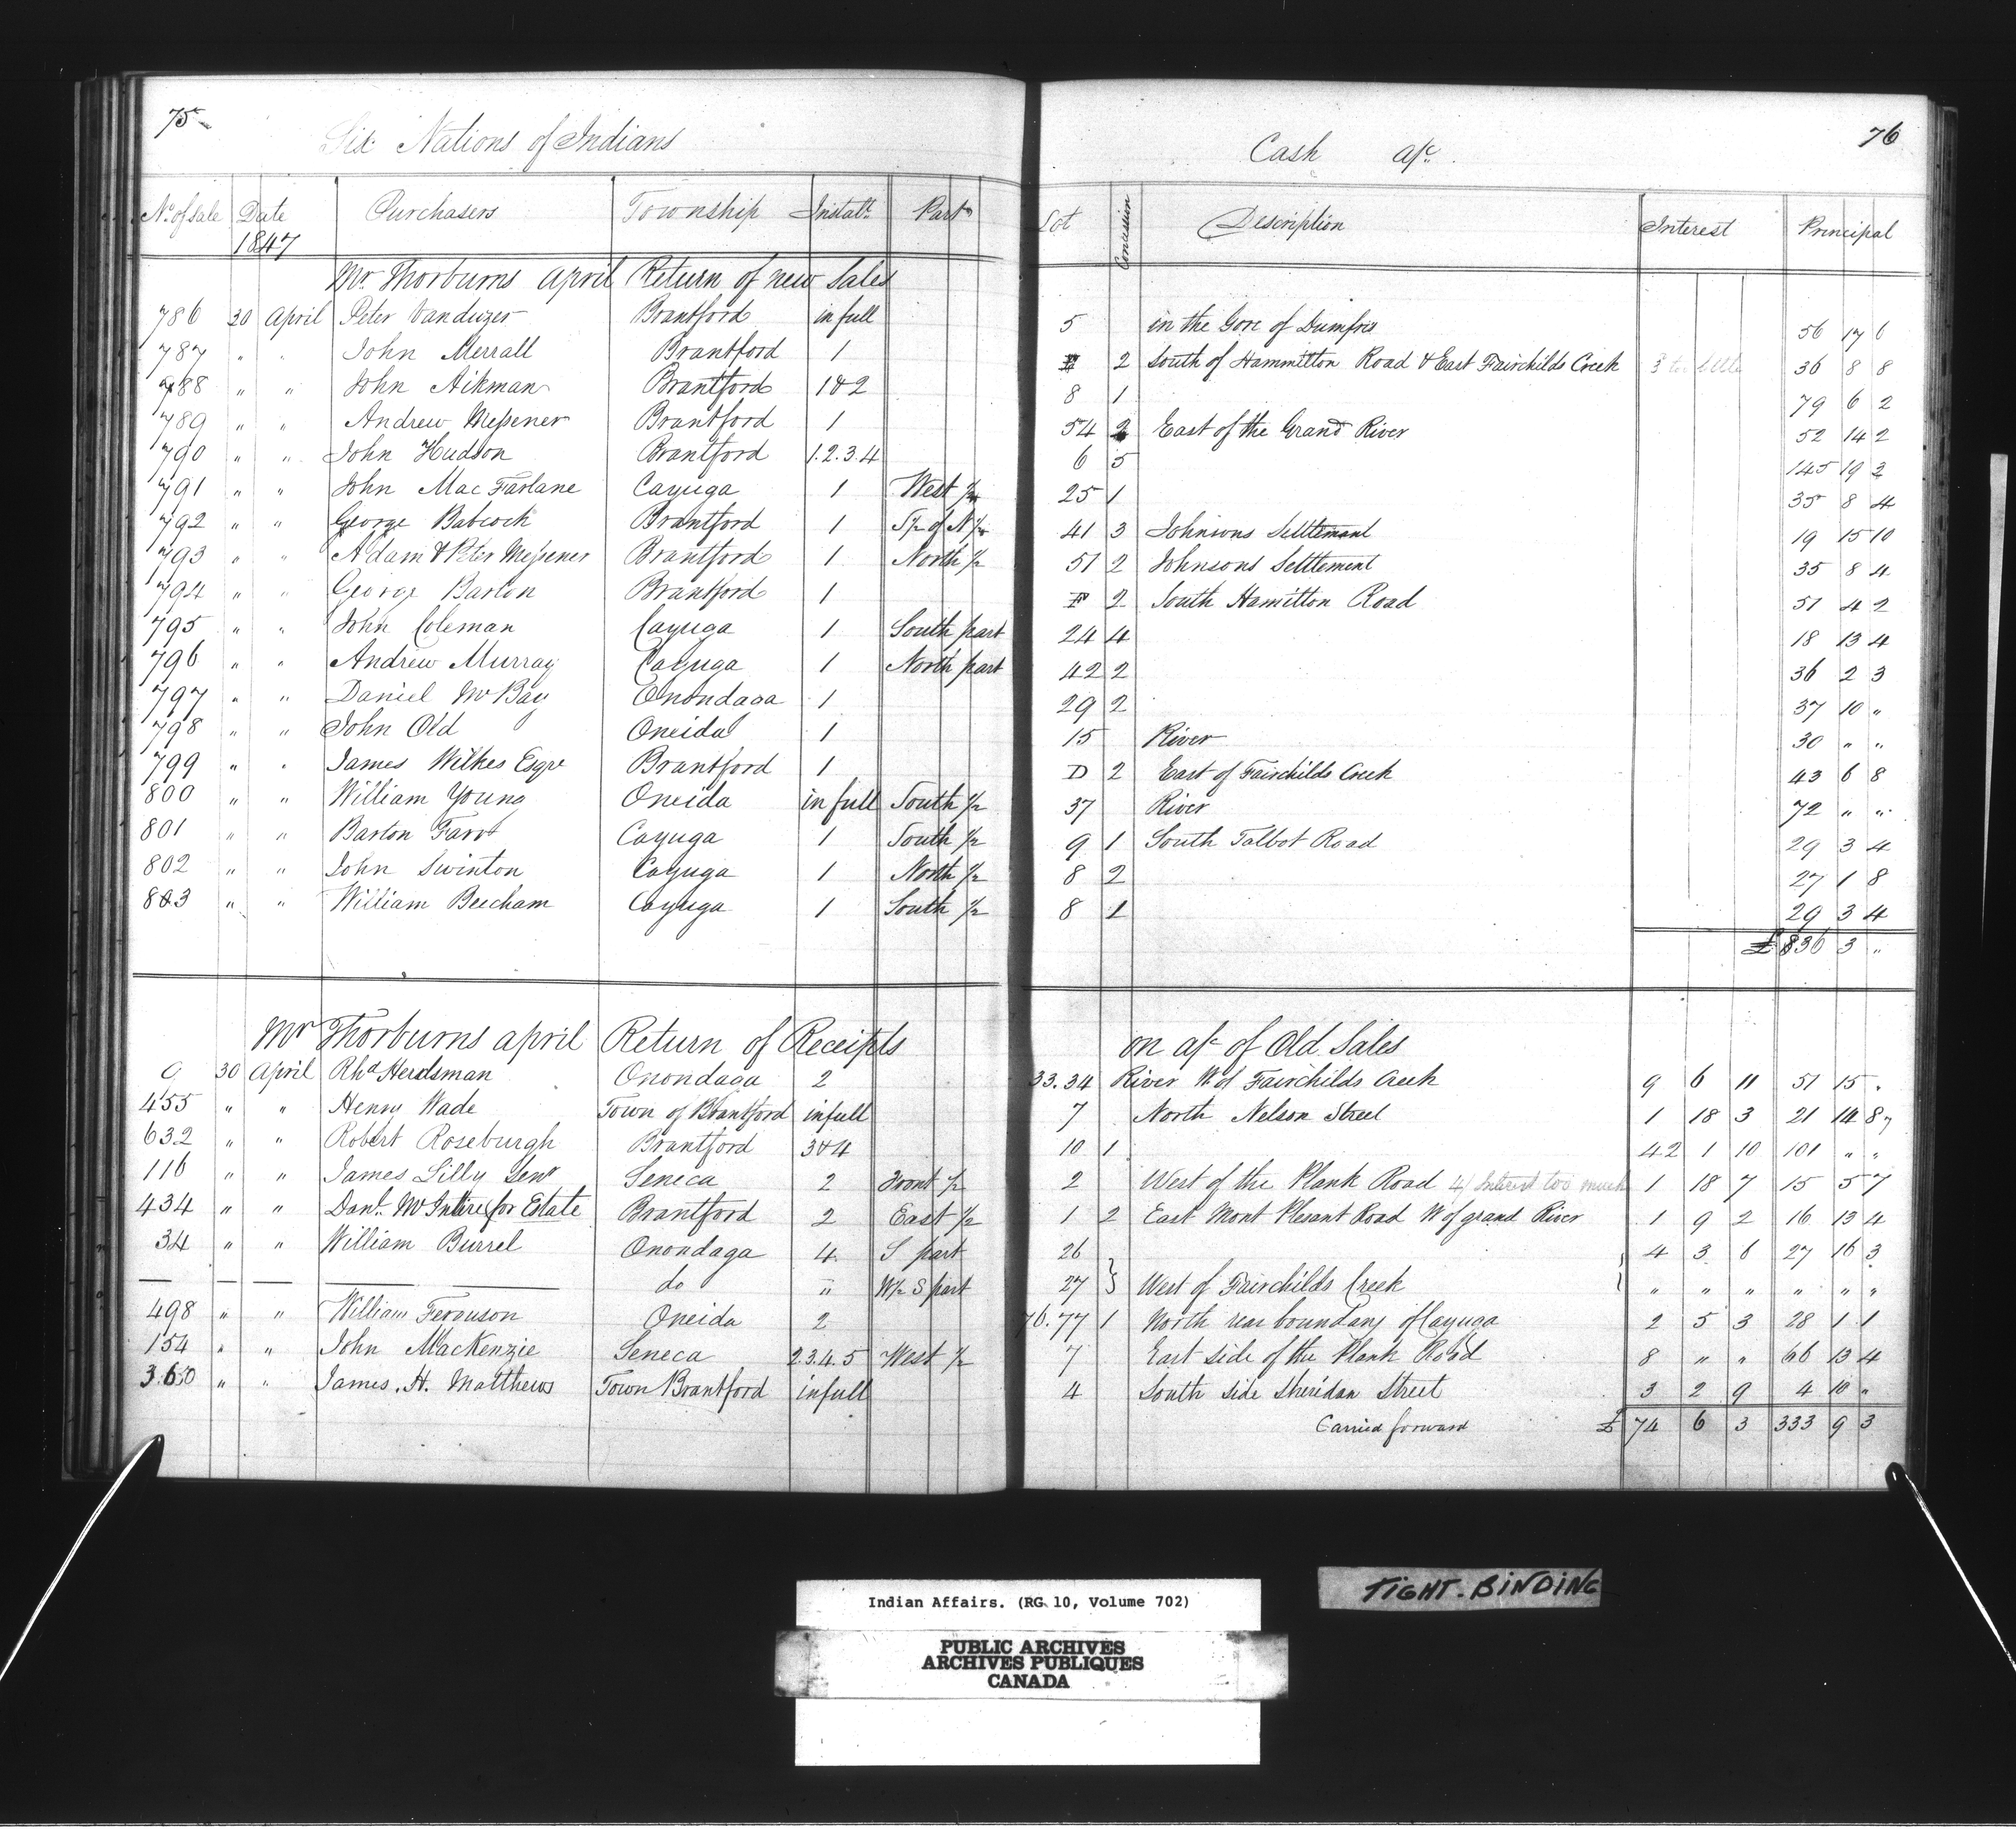 75
Six Nations of Indians
Cash a/c
76
No. of Sale Date Purchasers Township Instalt. Part Lot Concession Description Interest Principal
1847
Mr. Thorburns April Return of new Sales
786 30 April Peter Vanduzer Brantford in full 5 in the Gore of Dumfris 56 17 6
787 " " John Merrall Brantford 1 2 South of Hammilton Road & East Fairchilds Creek 36 8 8
788 " " John Aikman Brantford 1&2 8 1 79 6 2
789 " " Andrew Messener Brantford 1 54 2 East of the Grand River 52 14 2
790 " " John Hudson Brantford 1.2.3.4 6 5 145 19 2
791 " " John Mac Farlane Cayuga 1 West 1/2 25 1 35 8 4
792 " " George Babcock Brantford 1 S 1/2 of N 1/2 41 3 Johnsons Settlement 19 15 10
793 " " Adam & Peter Messener Brantford 1 North 1/2 51 2 Johnsons Settlement 35 8 4
794 " " George Barton Brantford 1 2 South Hamilton Road 51 4 2
795 " " John Coleman Cayuga 1 South part 24 4 18 13 4
796 " " Andrew Murray Cayuga 1 North part 42 2 36 2 3
797 " " Daniel McBay Onondaga 1 29 2 37 10 "
798 " " John Old Oneida 1 15 River 30 " "
799 " " James Wilkes Esqre Brantford 1 D 2 East of Fairchilds Creek 43 6 8
800 " " William Young Oneida in full South 1/2 37 River 72 " "
801 " " Barton Farr Cayuga 1 South 1/2 9 1 South Talbot Road 29 3 4
802 " " John Swinton Cayuga 1 North 1/2 8 2 27 1 8
803 " " William Beecham Cayuga 1 South 1/2 8 1 29 3 4
£836 3 "
Mr Thorburns april Return of Receipts on a/c of Old Sales
9 30 April Rhd Herdsman Onondaga 2 33.34 River W of Fairchilds Creek 9 6 11 51 15 "
455 " " Henry Wade Town of Brantford in full 7 North Nelson Street 1 18 3 21 14 8
632 " " Robert Roseburgh Brantford 3&4 10 1 42 1 10 101 " "
116 " " James Lilly Senr Seneca 2 Front 1/2 2 West of the Plank Road 4/ Interest too much 1 18 7 15 5 7
434 " " Danl. McIntire for Estate Brantford 2 East 1/2 1 2 East Mont Plesant Road W of grand River 1 9 2 16 13 4
34 " " William Burrel Onondaga 4 S part 26 4 3 6 27 16 3
— — — — do " W 1/2 S part 27 } West of Fairchilds Creek " " " " " "
498 " " William Ferguson Oneida 2 76.77 1 North rear boundary of Cayuga 2 5 3 28 1 1
154 " " John MacKenzie Seneca 2.3.4.5 West 1/2 7 East side of the Plank Road 8 " " 66 13 4
360 " " James. H. Matthews Town Brantford in full 4 South side Sheridan Street 3 2 9 4 10 "
Carried forward £ 74 6 3 333 9 3
TIGHT-BINDING
Indian Affairs. (RG 10, Volume 702)
PUBLIC ARCHIVES
ARCHIVES PUBLIQUES
CANADA